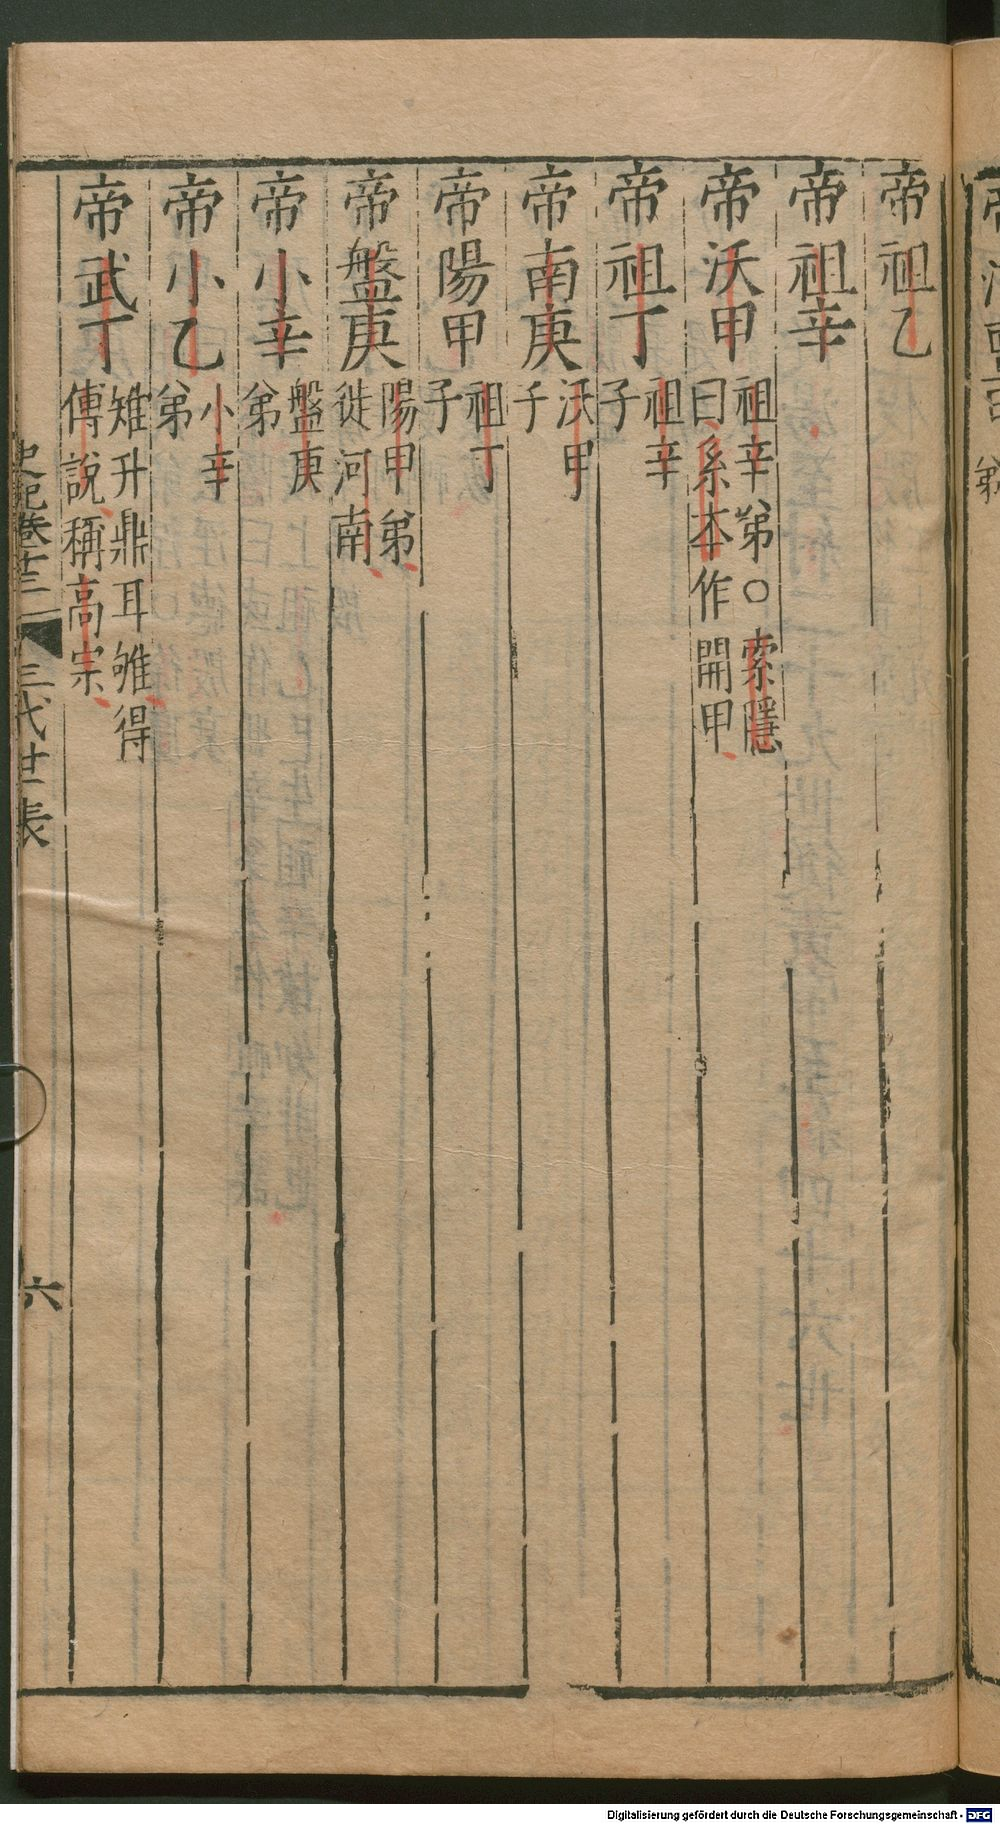 帝祖乙
帝祖辛
帝沃甲 祖辛弟○索隱
曰系本作開甲
帝祖丁 祖辛
子
帝南庚 沃甲
子
帝陽甲 祖丁
子
帝盤庚 陽甲弟
徙河南
帝小辛 盤庚
弟
帝小乙 小辛
弟
帝武丁 雉升鼎耳雊得
傅說稱高宗
史記卷十三 三代世表
六
弟
Digitalisierung gefördert durch die Deutsche Forschungsgemeinschaft - DFG